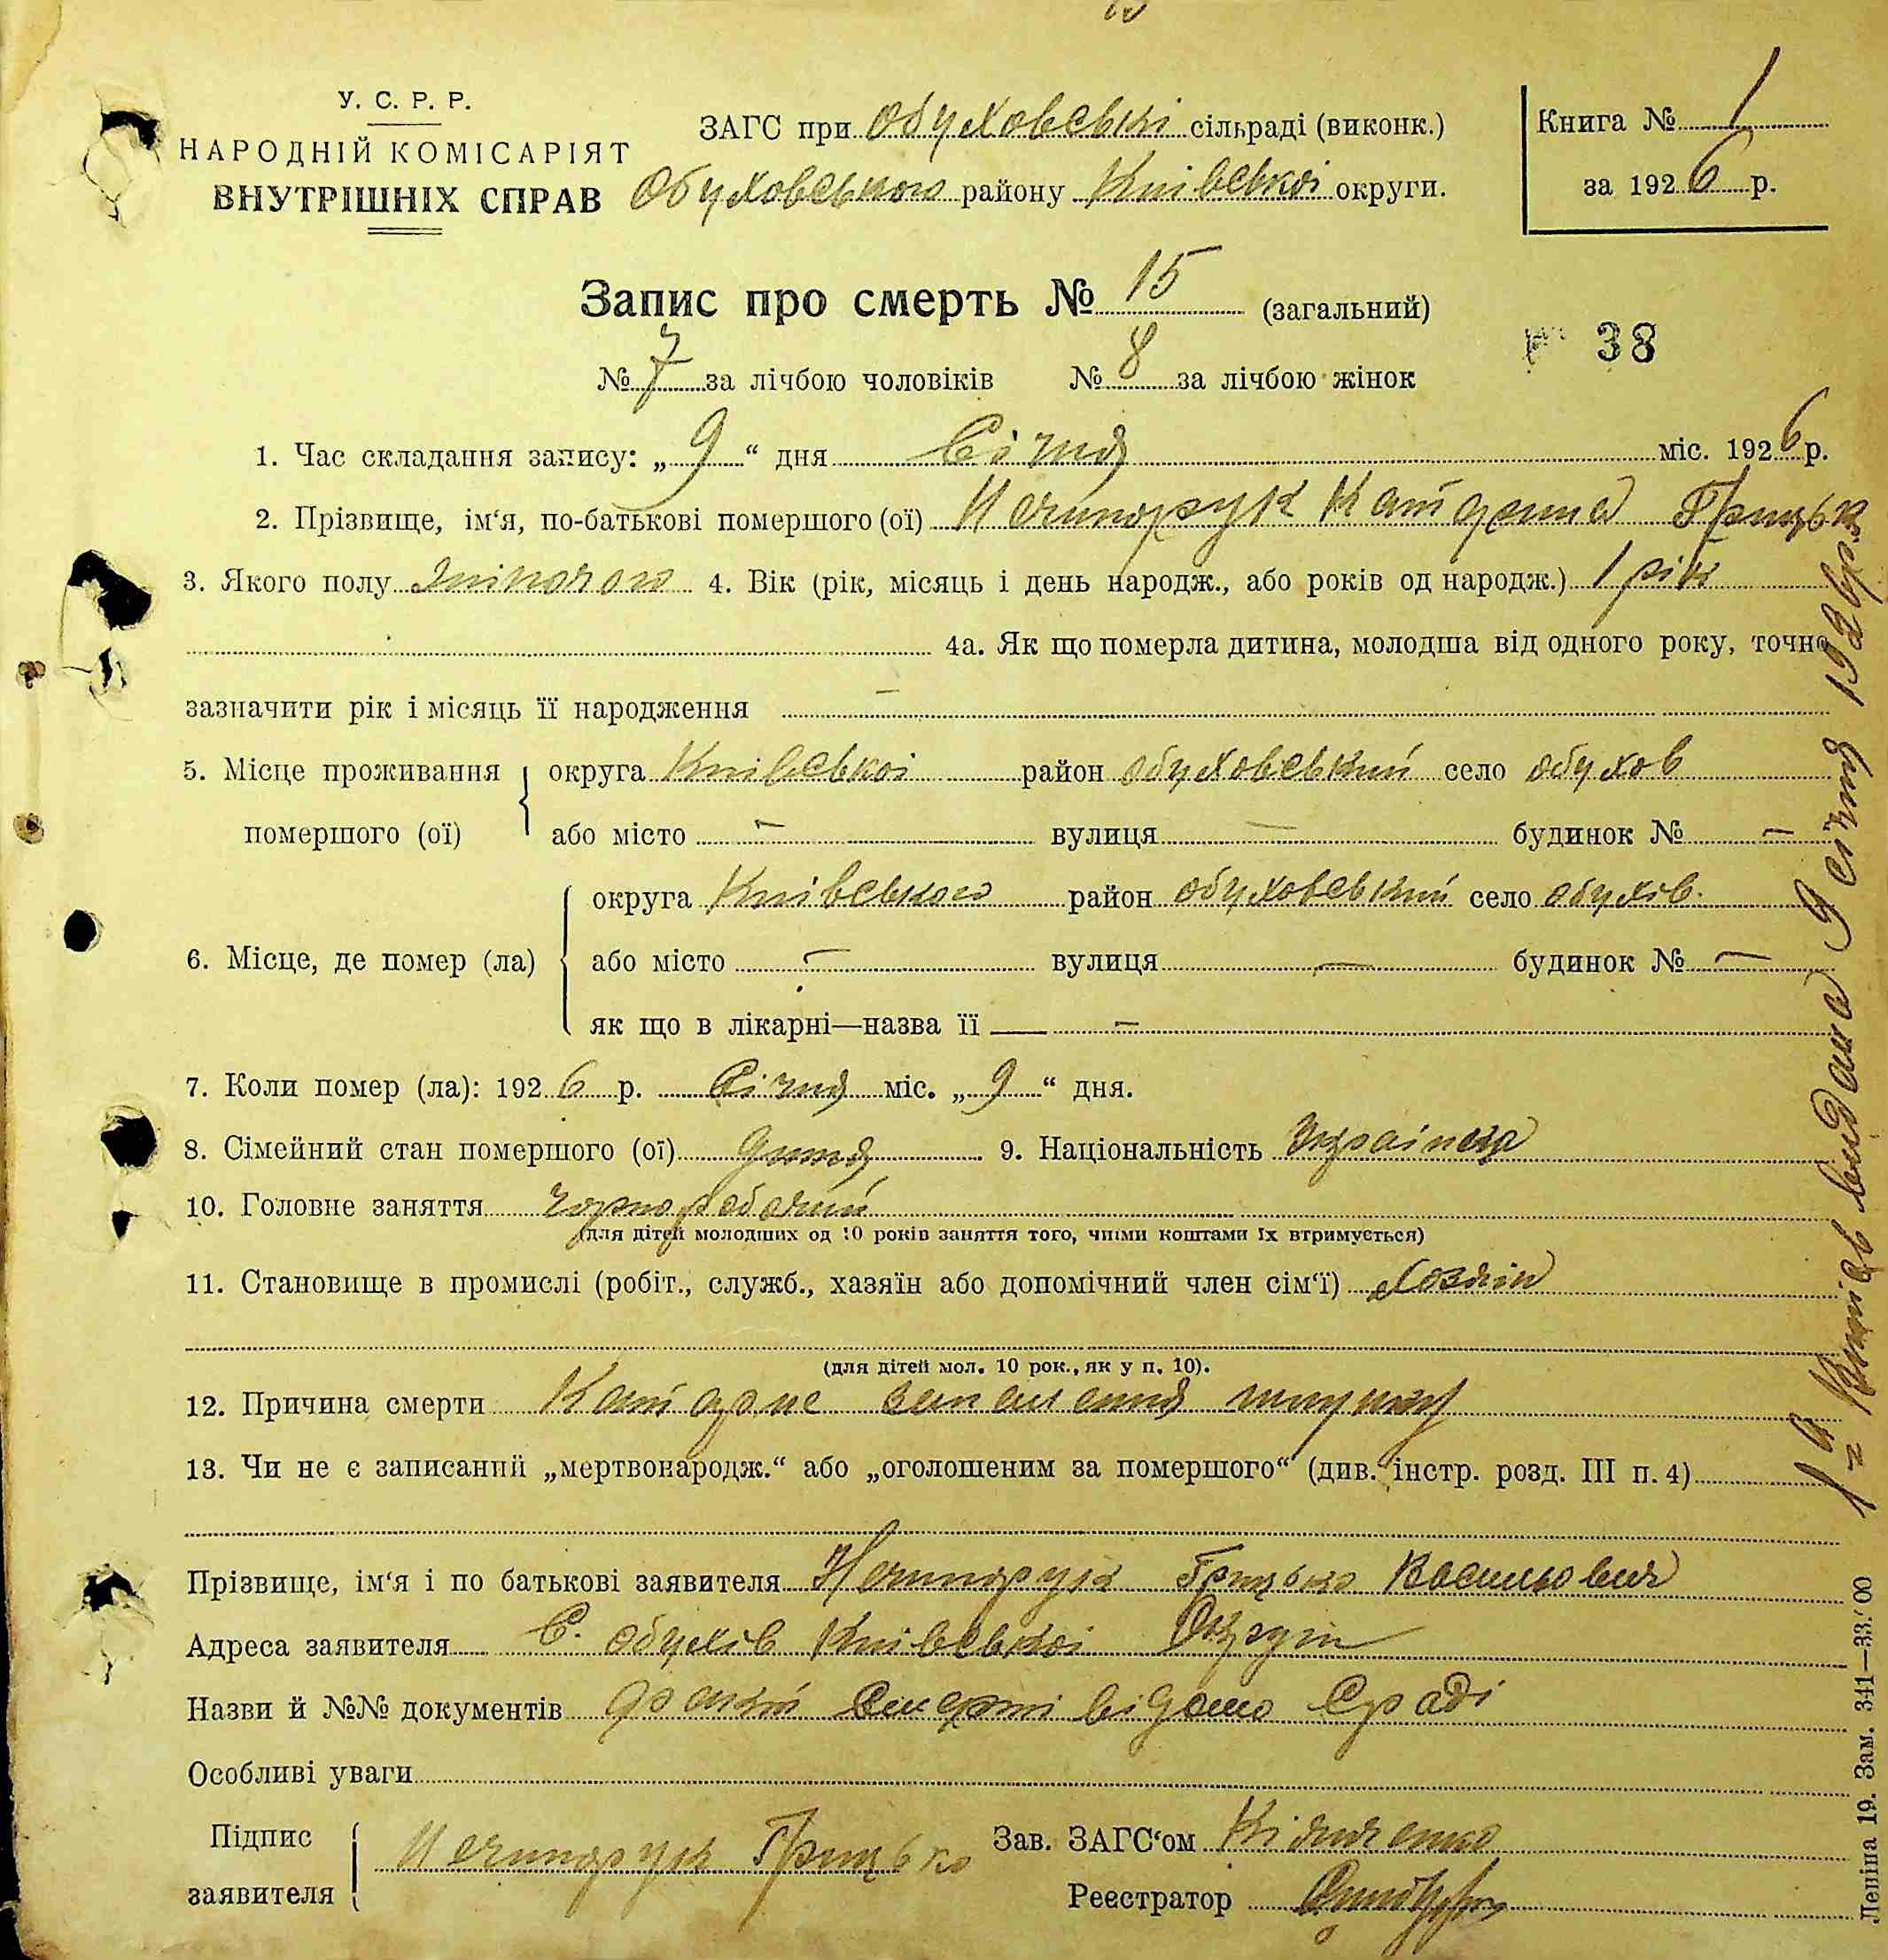 У. С. Р. Р.
НАРОДНІЙ КОМІСАРІЯТ
ВНУТРІШНІХ СПРАВ
ЗАГС при Обуховській сільраді (виконк.)
Обуховського району Київської округи.
Книга № 1
за 1926 р.
Запис про смерть № 15 (загальний)
№ 7 за лічбою чоловіків № 8 за лічбою жінок
38
1. Час складання запису: „9“ дня Січня міс. 1926 р.
2. Прізвище, ім‘я, по-батькові помершого (ої) Нечипорук Катерина Грицьк
3. Якого полу жіночого 4. Вік (рік, місяць і день народж., або років од народж.) 1 рік
4а. Як що померла дитина, молодша від одного року, точно
зазначити рік і місяць її народження —
5. Місце проживання помершого (ої) округа Київської район Обуховський село Обухов
або місто — вулиця — будинок № —
6. Місце, де помер (ла) округа Київського район Обуховський село Обухів.
або місто — вулиця — будинок № —
як що в лікарні—назва її —
7. Коли помер (ла): 1926 р. Січня міс. „9“ дня.
8. Сімейний стан помершого (ої) дитя 9. Національність Українка
10. Головне заняття чорноробочий
(для дітей молодших од 10 років заняття того, чиїми коштами їх втримується)
11. Становище в промислі (робіт., служб., хазяїн або допомічний член сім‘ї) Хозяїн
(для дітей мол. 10 рок., як у п. 10).
12. Причина смерти запалення
13. Чи не є записаний „мертвонародж.“ або „оголошеним за помершого“ (див. інстр. розд. III п. 4)
Прізвище, ім‘я і по батькові заявителя Нечипорук Грицько Васильович
Адреса заявителя С. Обухів Київської Округи
Назви й №№ документів факт смерті відомо С/раді
Особливі уваги
Підпис заявителя Нечипорук Грицько
Зав. ЗАГС‘ом
Реєстратор
видана 9 січня 1926 р.
Леніна 19. Зам. 341—33.′00